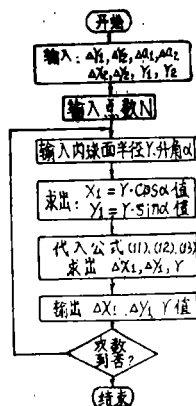 开始
输入: ΔY₁, ΔY₂, Δα₁, Δα₂
ΔX₂, ΔZ₂, Y₁, Y₂
输入点数N
输入内球面半径Y.升角α
求出: X₁=Y·Cosα值
Y₁=Y·sinα值
代入公式(11).(12).(13)
求出 ΔX₁,ΔY₁,Y
输出 ΔX₁ ΔY₁ Y值
次数
到否?
结束